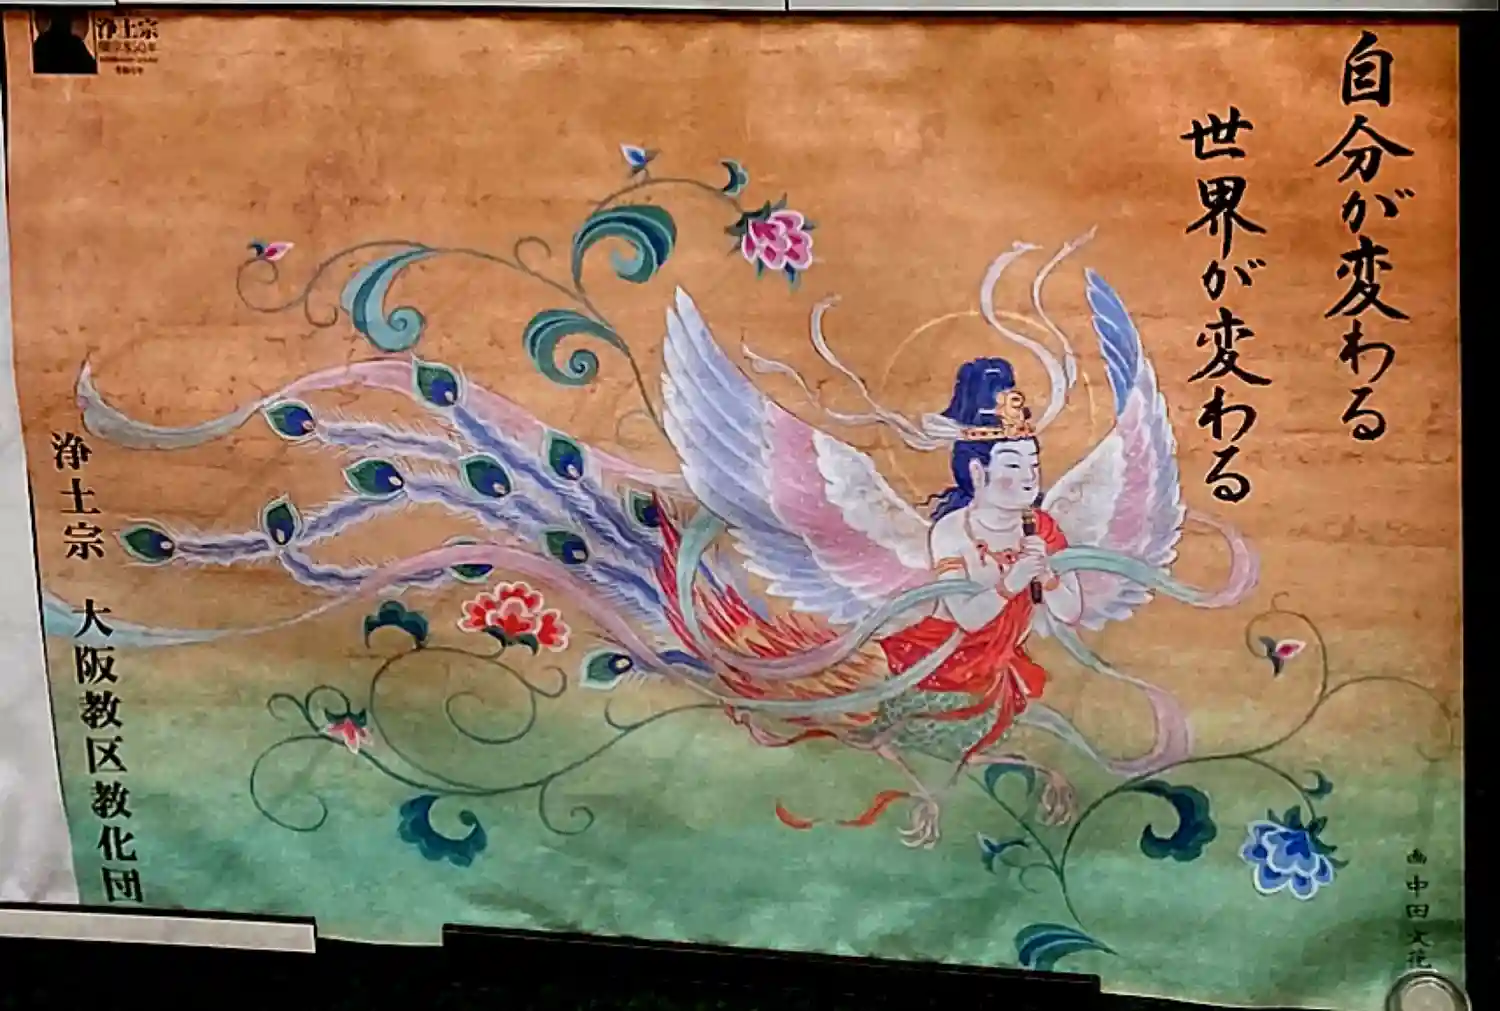 自分が変わる
世界が変わる
浄土宗
開宗850年
浄土宗 大阪教区教化団
画 中田文花